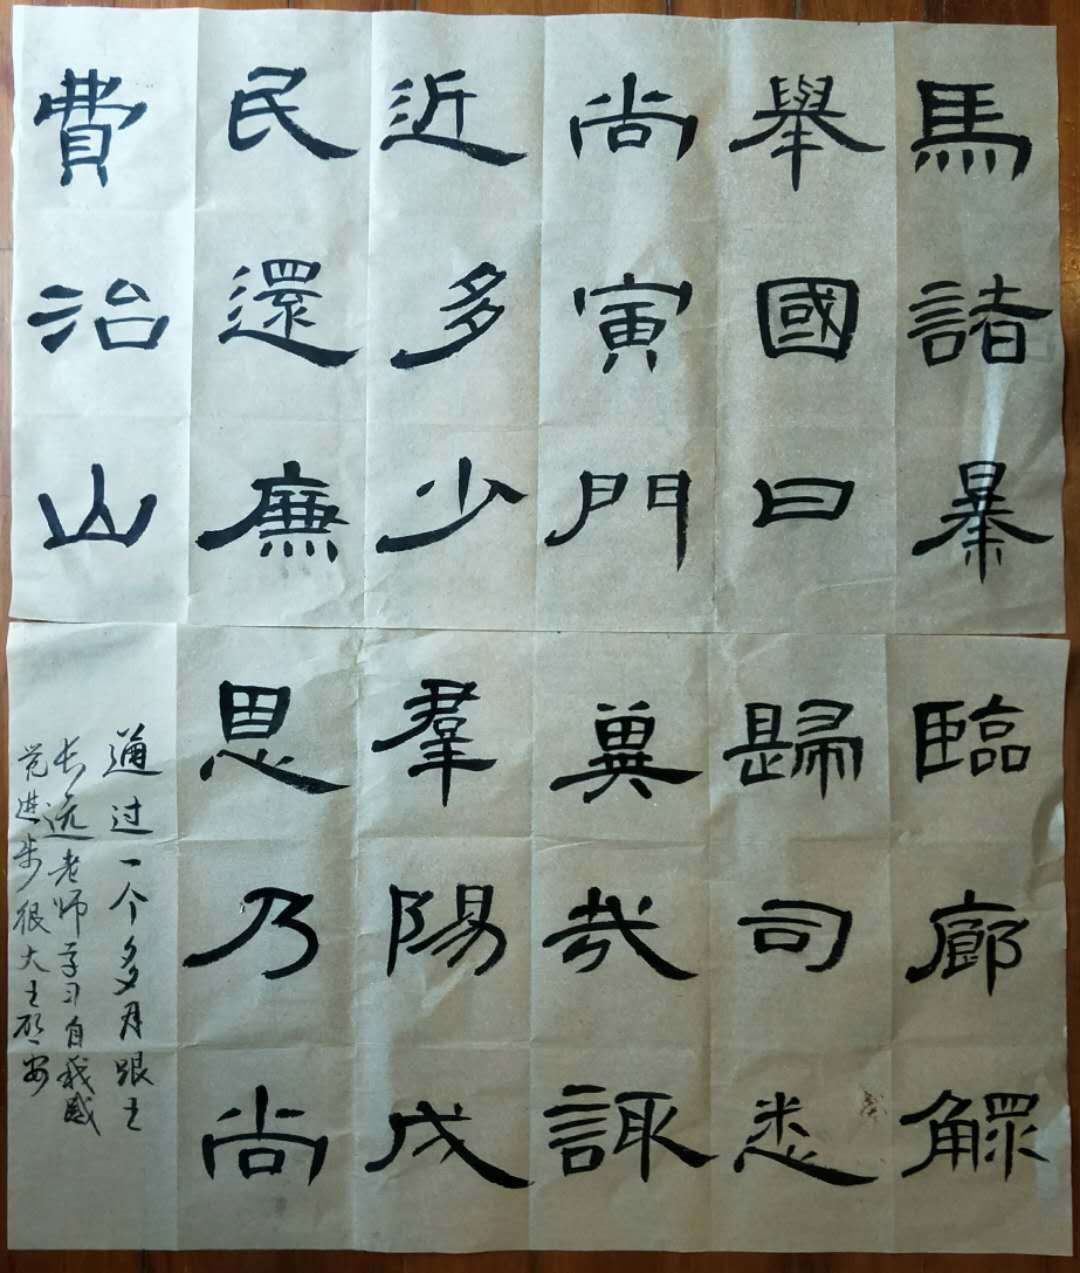 馬諸暴
舉國曰
尚寅門
近多少
民還廉
費治山
臨廊鰥
歸司悉
冀哉諏
羣陽戊
思乃尚
通过一个多月跟王
长远老师学习自我感
觉进步很大王安